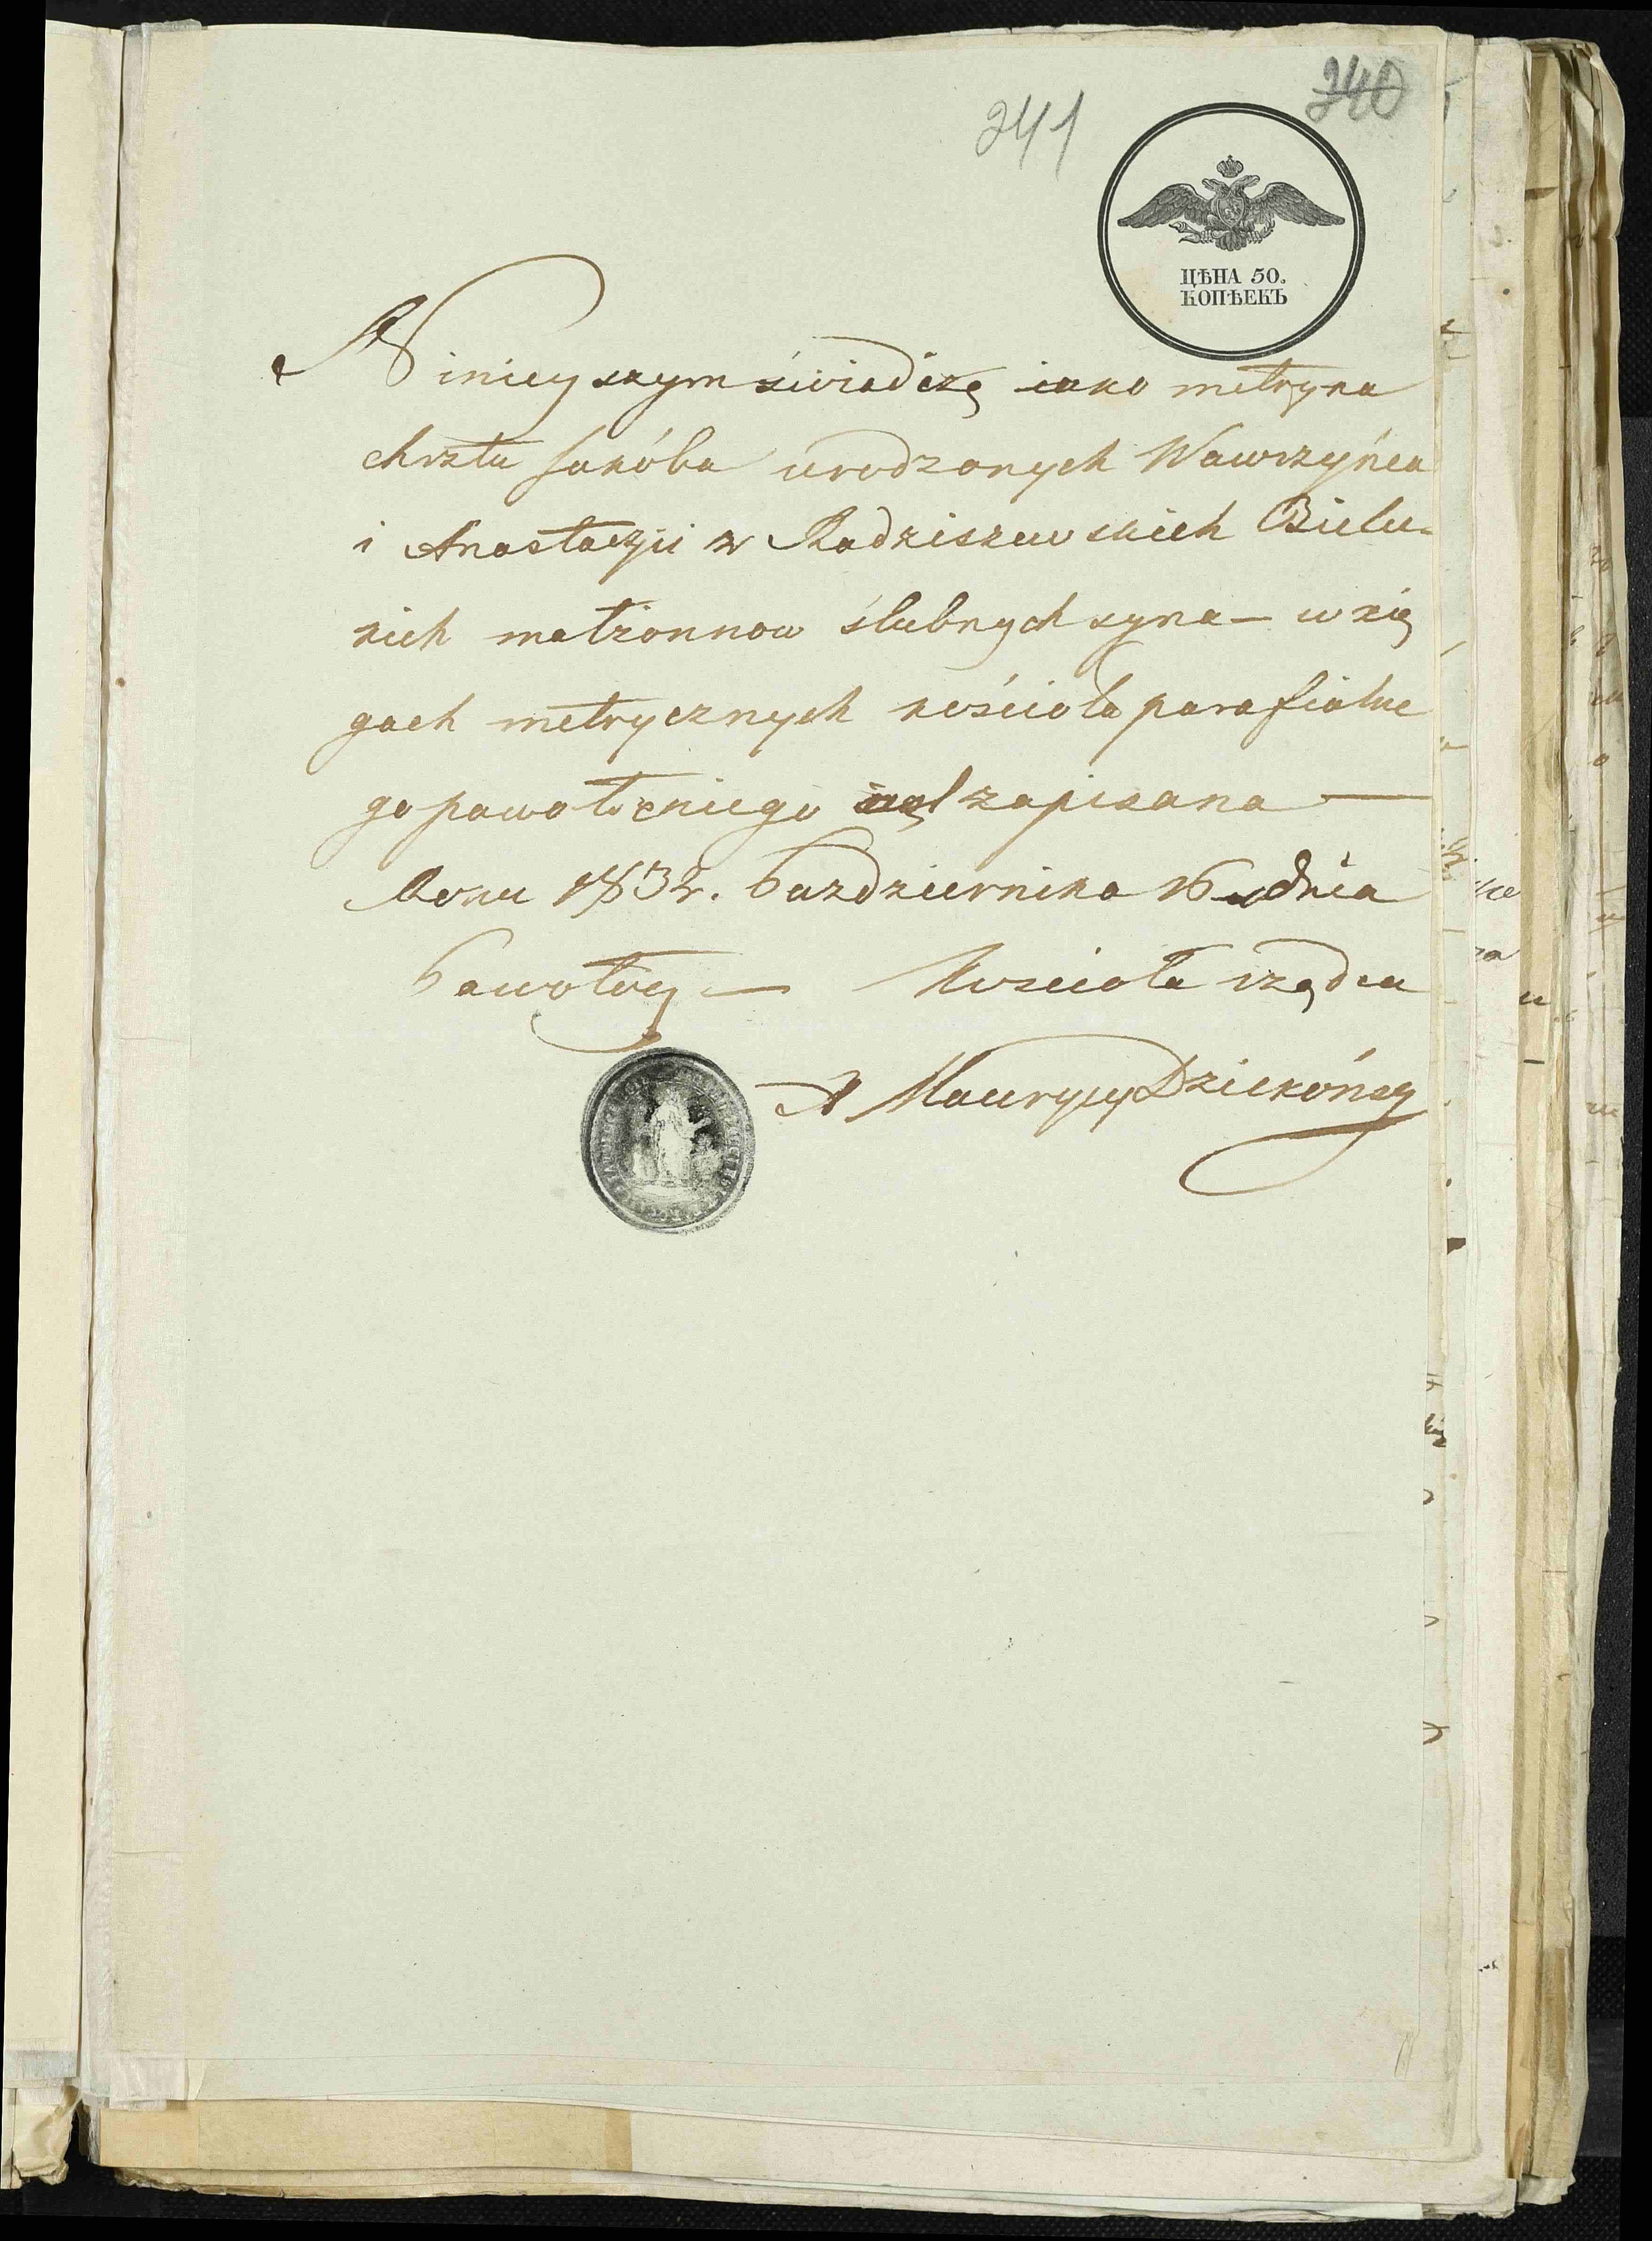 241
240
ЦѢНА 50.
КОПѢЕКЪ
Ninieyszym świadczę iako metryka
chrztu Jakóba urodzonych Wawrzyńca
i Anastazyi z Radziszewskich Bielu-
kich małzonnow ślubnych syna — w xię
gach metrycznych kościoła parafialne
go pawołockiego zapisana —
Roku 1832. Pazdziernika 16 dnia
Pawołocz — Kościoła rządca
X Maurycy Dziekoński